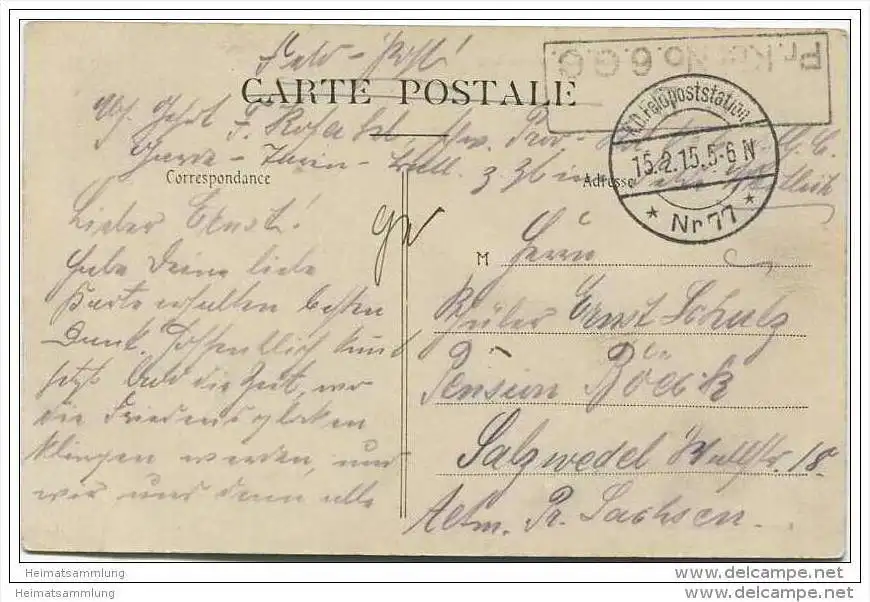 Feld-Post!
CARTE POSTALE
Pr. Ko. No 6. G.C.
K.D. Feldpoststation
15.2.15. 5-6 N
* Nr 77 *
Correspondance
Adresse
Lieber Ernst!
Habe Deine liebe
Karte erhalten besten
Dank. Hoffentlich kommt
jetzt bald die Zeit, wo
die Friedensglocken
klingen werden, und
wir uns dann alle
M
Herrn
Schüler Ernst Schulz
Pension Böeck
Salzwedel Wallstr. 18.
Altm. Pr. Sachsen.
Heimatsammlung
Heimatsammlung
www.delcampe.net
www.delcampe.net